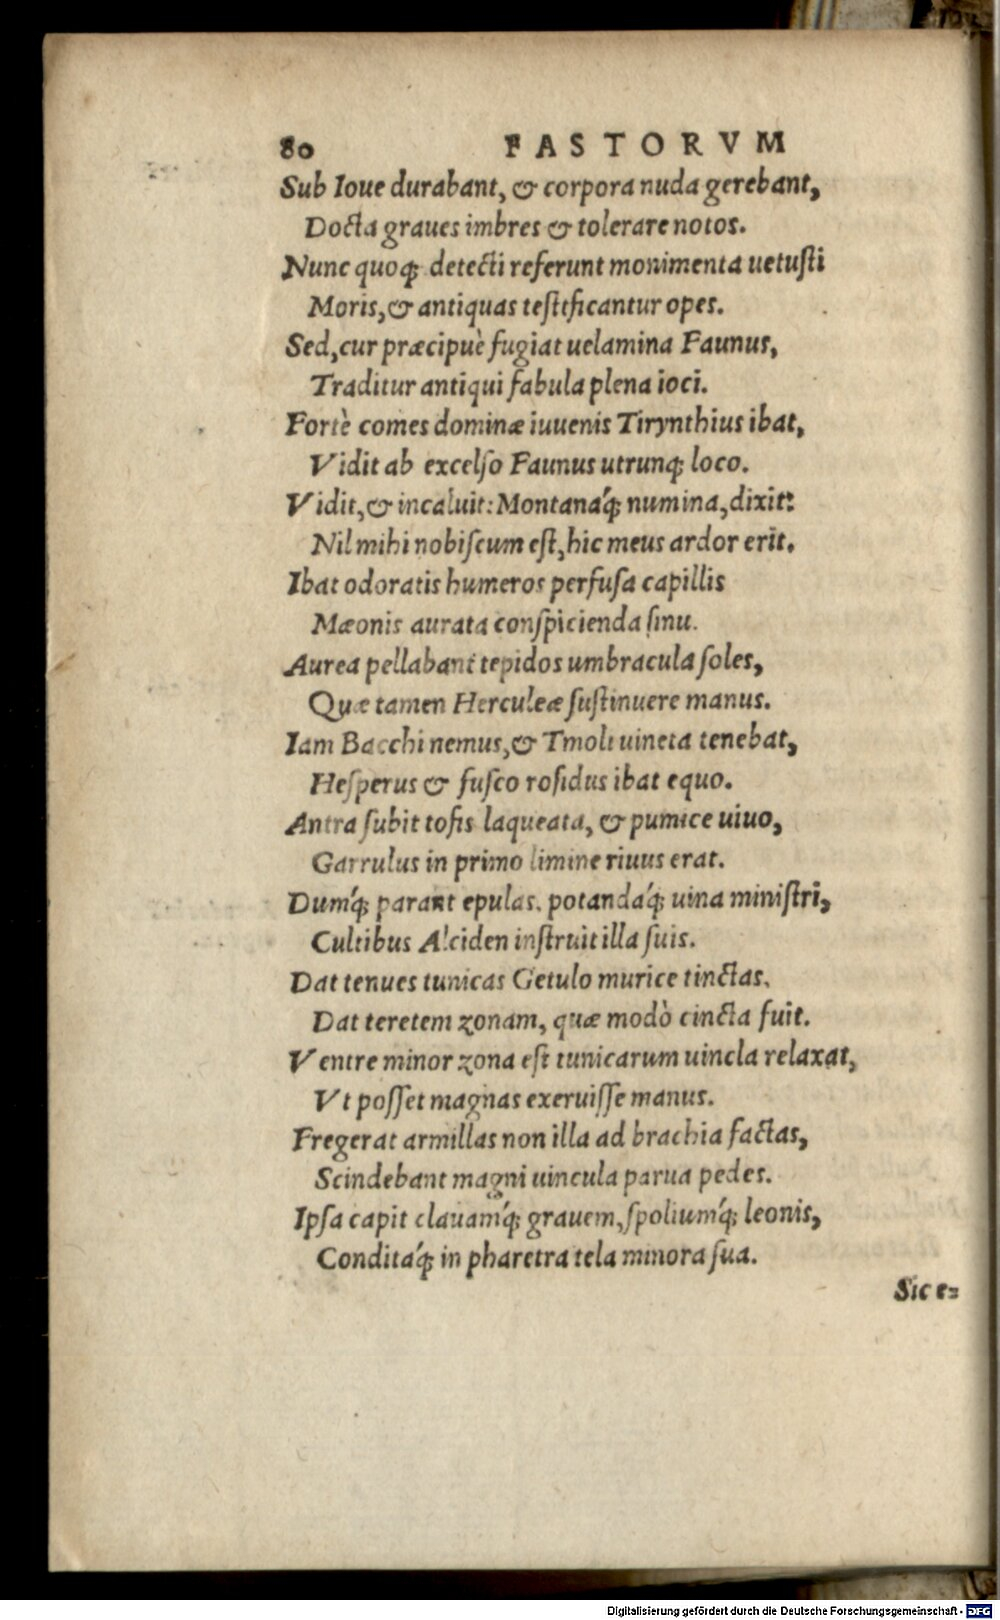 80 FASTORVM
Sub Ioue durabant, & corpora nuda gerebant,
Docta graues imbres & tolerare notos.
Nunc quoq; detecti referunt monimenta uetusti
Moris, & antiquas testificantur opes.
Sed, cur præcipuè fugiat uelamina Faunus,
Traditur antiqui fabula plena ioci.
Fortè comes dominæ iuuenis Tirynthius ibat,
Vidit ab excelso Faunus utrunq; loco.
Vidit, & incaluit: Montanáq; numina, dixit:
Nil mihi nobiscum est, hic meus ardor erit.
Ibat odoratis humeros perfusa capillis
Mæonis aurata conspicienda sinu.
Aurea pellabant tepidos umbracula soles,
Quæ tamen Herculeæ sustinuere manus.
Iam Bacchi nemus, & Tmoli uineta tenebat,
Hesperus & fusco rosidus ibat equo.
Antra subit tofis laqueata, & pumice uiuo,
Garrulus in primo limine riuus erat.
Dumq́; parant epulas, potandáq; uina ministri,
Cultibus Alciden instruit illa suis.
Dat tenues tunicas Getulo murice tinctas.
Dat teretem zonam, quæ modò cincta fuit.
Ventre minor zona est tunicarum uincla relaxat,
Vt posset magnas exeruisse manus.
Fregerat armillas non illa ad brachia factas,
Scindebant magni uincula parua pedes.
Ipsa capit clauamq́; grauem, spoliumq́; leonis,
Conditáq; in pharetra tela minora sua.
Sic e=
Digitalisierung gefördert durch die Deutsche Forschungsgemeinschaft - DFG